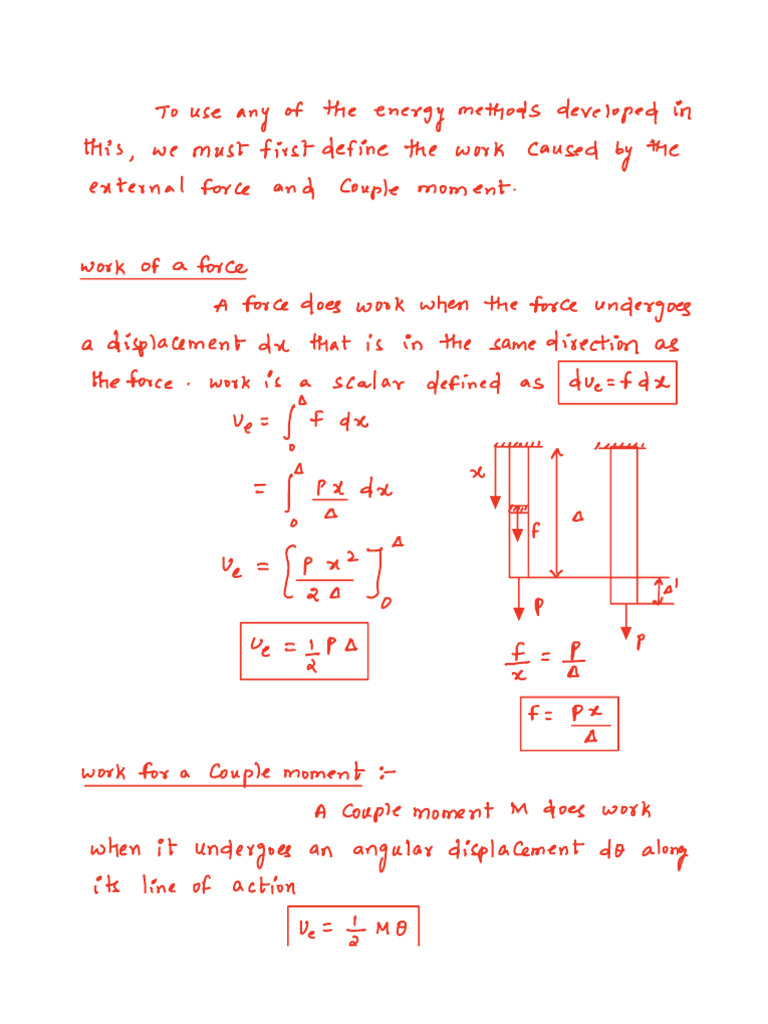 To use any of the energy methods developed in
this, we must first define the work caused by the
external force and couple moment.
work of a force
A force does work when the force undergoes
a displacement dx that is in the same direction as
the force. work is a scalar defined as dUe = f dx
Ue = ∫₀^Δ f dx
= ∫₀^Δ Px/Δ dx
Ue = [P x²/2Δ]₀^Δ
Ue = 1/2 P Δ
x
f
Δ
P
Δ'
P
f/x = P/Δ
f = Px/Δ
work for a couple moment :-
A couple moment M does work
when it undergoes an angular displacement dθ along
its line of action
Ue = 1/2 M θ